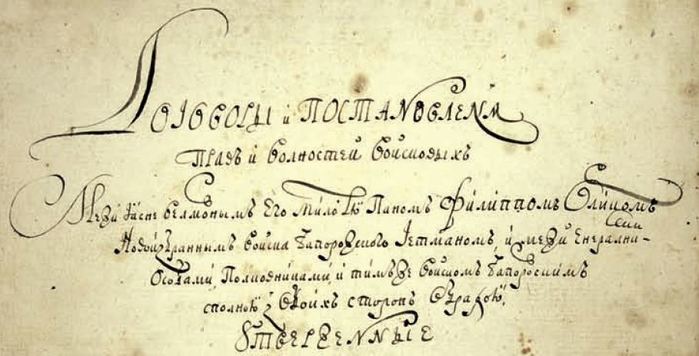 Договоры и Постановленя
Правъ и волностей войсковыхъ
Межи Ясне велможнымъ Его милостю Паномъ Филиппомъ Орликомъ
Новоизбраннымъ войска Запорожского Гетманомъ, и межи Енералними
Особами, Полковниками, и тимъже войскомъ Запорозскимъ
сполною з обоихъ сторонъ обрадою,
Утверженные